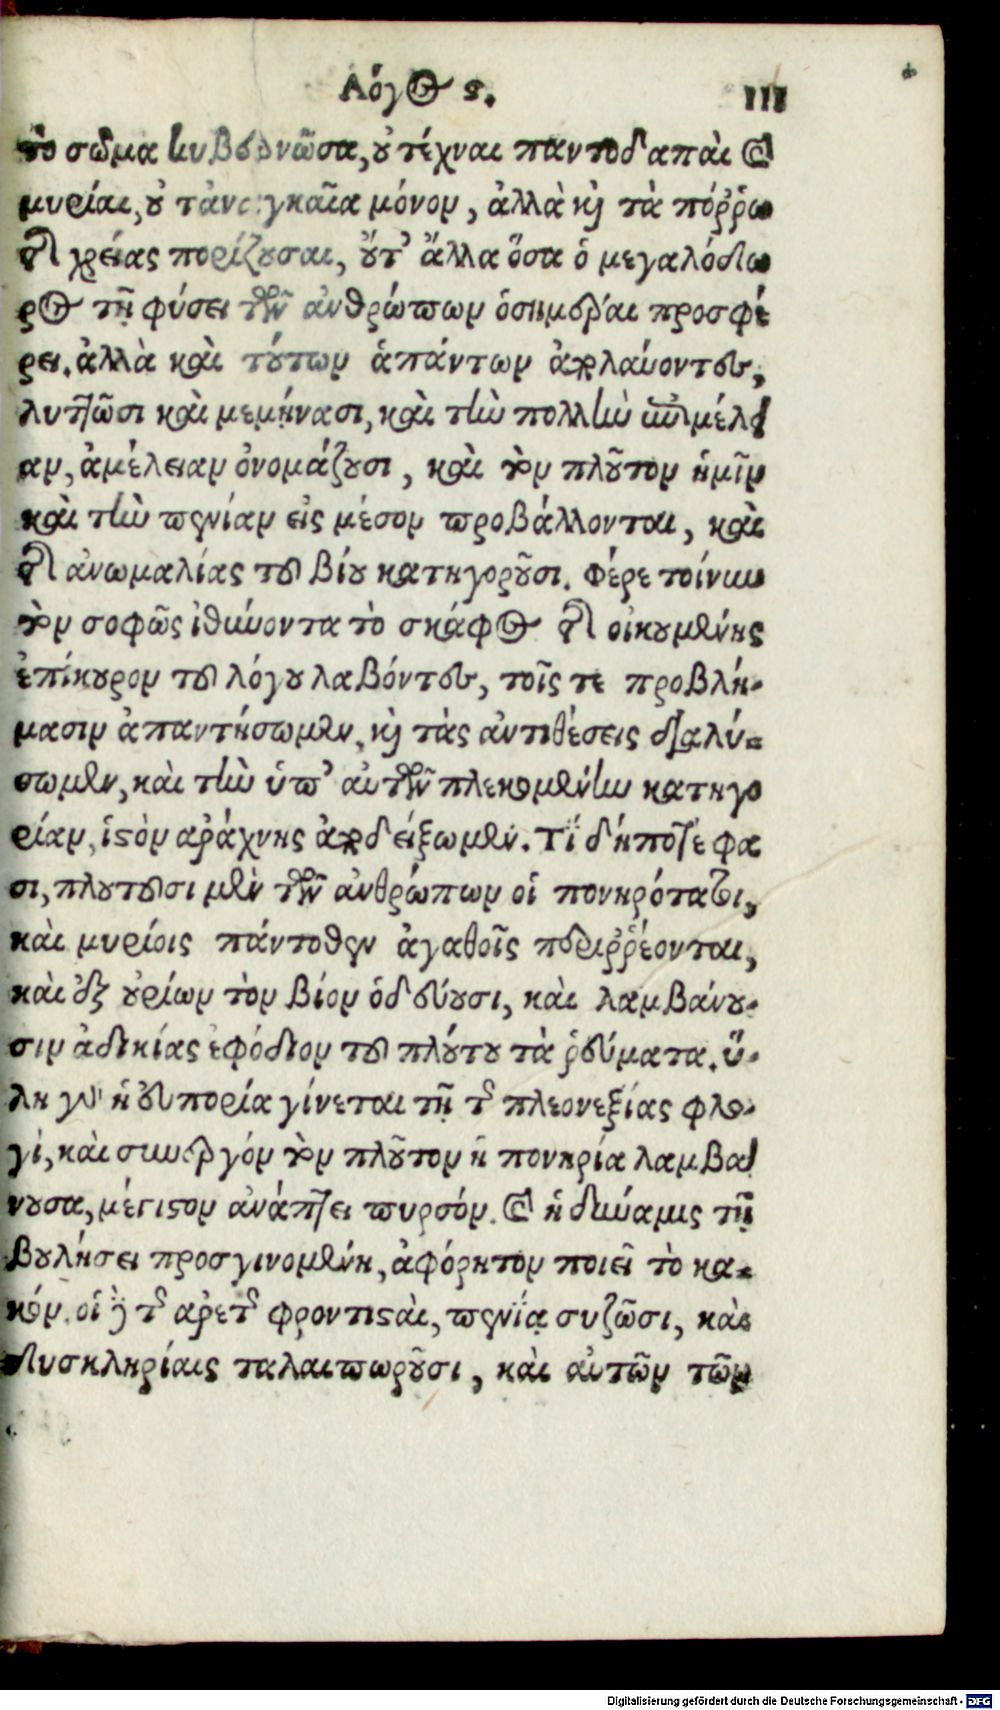 Λόγος ϛ. 111
τὸ σῶμα κυβερνῶσα, οὐ τέχναι παντοδαπαὶ καὶ
μυρίαι, οὐ τἀναγκαῖα μόνον, ἀλλὰ καὶ τὰ πόῤῥω
τῆς χρείας πορίζουσαι, οὔτ' ἄλλα ὅσα ὁ μεγαλόδω
ρος τῇ φύσει τῶν ἀνθρώπων ὁσημέραι προσφέ
ρει. ἀλλὰ καὶ τούτων ἁπάντων ἀπολαύοντες,
λυττῶσι καὶ μεμήνασι, καὶ τὴν πολλὴν ἐπιμέλει
αν, ἀμέλειαν ὀνομάζουσι, καὶ τὸν πλοῦτον ἡμῖν
καὶ τὴν πενίαν εἰς μέσον προβάλλονται, καὶ
τῆς ἀνωμαλίας τοῦ βίου κατηγοροῦσι. Φέρε τοίνυν
τὸν σοφῶς ἰθύνοντα τὸ σκάφος τῆς οἰκουμένης
ἐπίκουρον τοῦ λόγου λαβόντες, τοῖς τε προβλή-
μασιν ἀπαντήσωμεν, καὶ τὰς ἀντιθέσεις διαλύ-
σωμεν, καὶ τὴν ὑπ' αὐτῶν πλεκομένην κατηγο
ρίαν, ἱστὸν ἀράχνης ἀποδείξωμεν. Τί δήποτέ φα
σι, πλουτοῦσι μὲν τῶν ἀνθρώπων οἱ πονηρότατοι,
καὶ μυρίοις πάντοθεν ἀγαθοῖς περιῤῥέονται,
καὶ ἐξ οὐρίων τὸν βίον ὁδεύουσι, καὶ λαμβάνου-
σιν ἀδικίας ἐφόδιον τοῦ πλούτου τὰ ῥεύματα. ὕ-
λη γὰρ ἡ εὐπορία γίνεται τῇ τῆς πλεονεξίας φλο-
γὶ, καὶ συνεργὸν τὸν πλοῦτον ἡ πονηρία λαμβά
νουσα, μέγιστον ἀνάπτει πυρσόν. καὶ ἡ δύναμις τῇ
βουλήσει προσγινομένη, ἀφόρητον ποιεῖ τὸ κα-
κόν. οἱ δὲ τῆς ἀρετῆς φροντισταὶ, πενίᾳ συζῶσι, καὶ
δυσκληρίαις ταλαιπωροῦσι, καὶ αὐτῶν τῶν
Digitalisierung gefördert durch die Deutsche Forschungsgemeinschaft - DFG